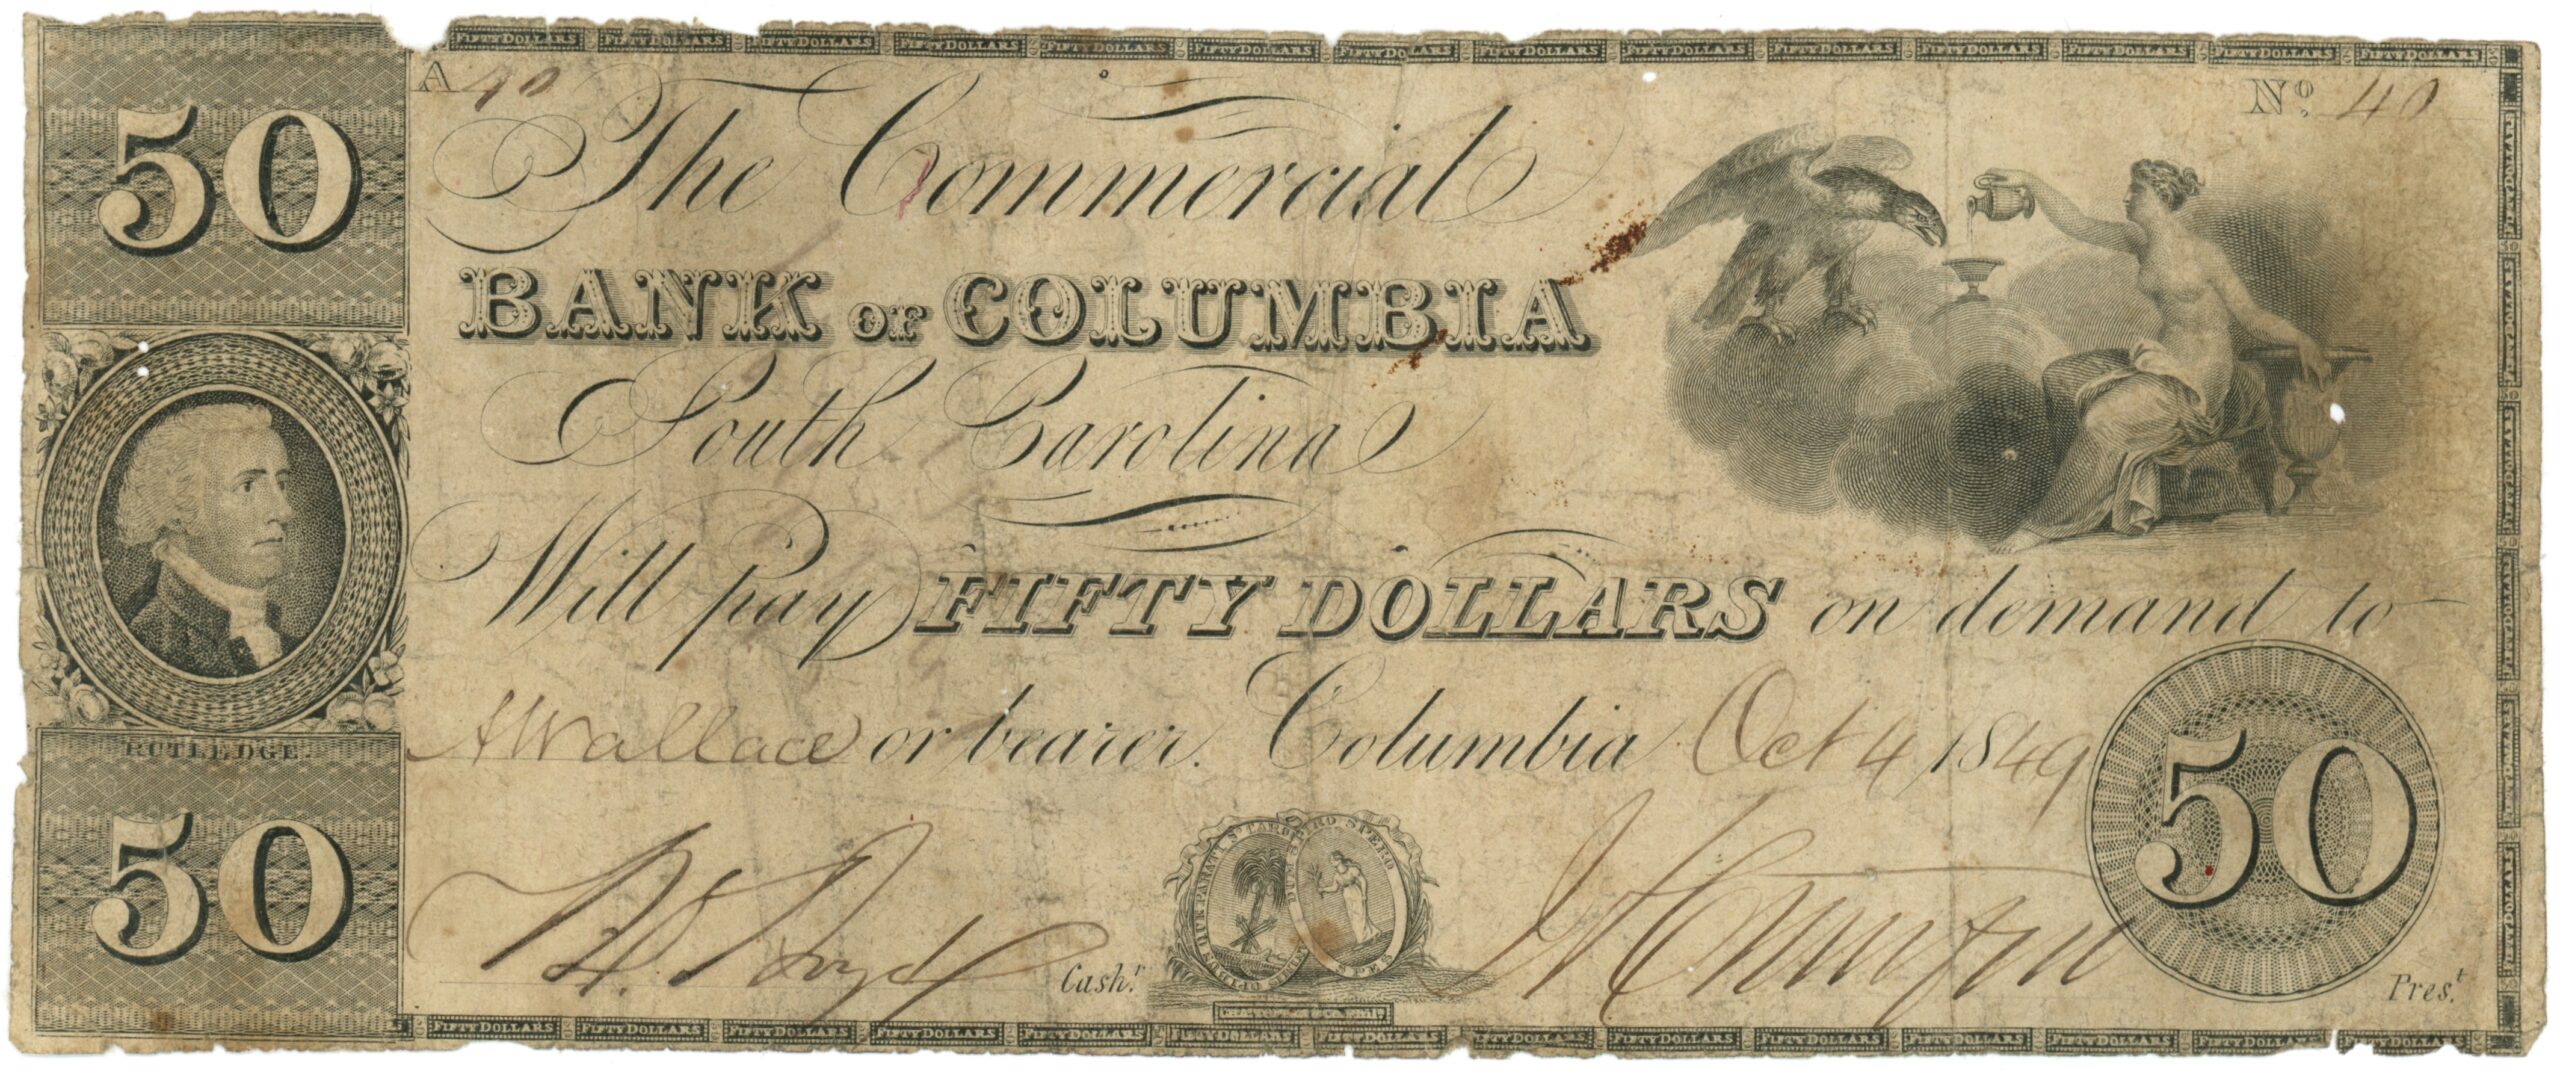 FIFTY DOLLARS FIFTY DOLLARS FIFTY DOLLARS FIFTY DOLLARS FIFTY DOLLARS FIFTY DOLLARS FIFTY DOLLARS FIFTY DOLLARS FIFTY DOLLARS FIFTY DOLLARS FIFTY DOLLARS FIFTY DOLLARS FIFTY DOLLARS FIFTY DOLLARS
50
A 40
No. 40
The Commercial
BANK OF COLUMBIA
South Carolina
Will pay FIFTY DOLLARS on demand to
A Wallace or bearer. Columbia Oct 4 1849
RUTLEDGE.
50
50
Cash.r
Pres.t
SPERO
SPES
FIFTY DOLLARS FIFTY DOLLARS FIFTY DOLLARS FIFTY DOLLARS FIFTY DOLLARS FIFTY DOLLARS FIFTY DOLLARS FIFTY DOLLARS FIFTY DOLLARS FIFTY DOLLARS FIFTY DOLLARS FIFTY DOLLARS FIFTY DOLLARS FIFTY DOLLARS